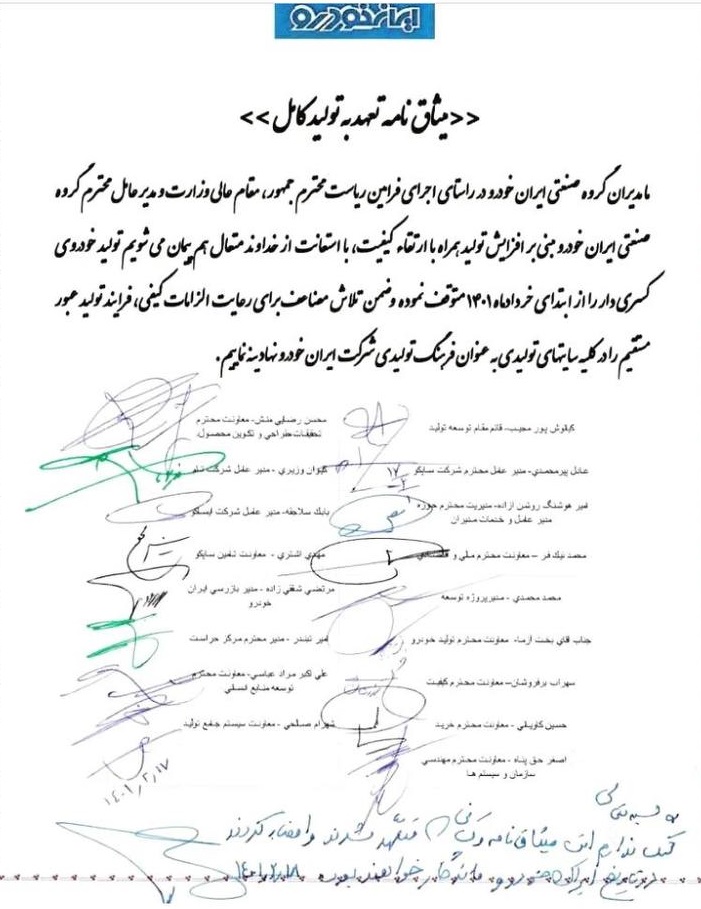 ایران خودرو
<<میثاق نامه تعهد به تولید کامل>>
ما مدیران گروه صنعتی ایران خودرو در راستای اجرای فرامین ریاست محترم جمهور، مقام عالی وزارت و مدیر عامل محترم گروه
صنعتی ایران خودرو مبنی بر افزایش تولید همراه با ارتقاء کیفیت، با استعانت از خداوند متعال هم پیمان می شویم تولید خودروی
کسری دار را از ابتدای خرداد ماه ۱۴۰۱ متوقف نموده و ضمن تلاش مضاعف برای رعایت الزامات کیفی، فرایند تولید عبور
مستقیم را در کلیه سایتهای تولیدی به عنوان فرهنگ تولیدی شرکت ایران خودرو نهادینه نماییم.
کیانوش پور مجیب- قائم مقام توسعه تولید
محسن رضایی منش- معاونت محترم
تحقیقات طراحی و تکوین محصول
عادل پیرمحمدی- مدیر عامل محترم شرکت ساپکو
کیوان وزیری- مدیر عامل شرکت تام
امیر هوشنگ روشن ازاده- مدیریت محترم حوزه
مدیر عامل و خدمات مدیران
بابک سلاجقه- مدیر عامل شرکت ایسکو
محمد نیک فر – معاونت محترم مالی و اقتصادی
مهدی اشتری - معاونت تامین ساپکو
محمد محمدی- مدیرپروژه توسعه
مرتضی شفیع زاده- مدیر بازرسی ایران
خودرو
جناب آقای بخت آزما- معاونت محترم تولید خودرو
امیر تبندر- مدیر محترم مرکز حراست
سهراب برفروشان– معاونت محترم کیفیت
علی اکبر مراد عباسی- معاونت محترم
توسعه منابع انسانی
حسین کاویانی - معاونت محترم خرید
شهرام صالحی - معاونت سیستم جامع تولید
اصغر حق پناه - معاونت محترم مهندسی
سازمان و سیستم ها
۱۴۰۱/۲/۱۷
شک ندارم این میثاق نامه متعهد شدند و امضاء کردند
در تاریخ ایران خودرو ماندگار خواهند بود